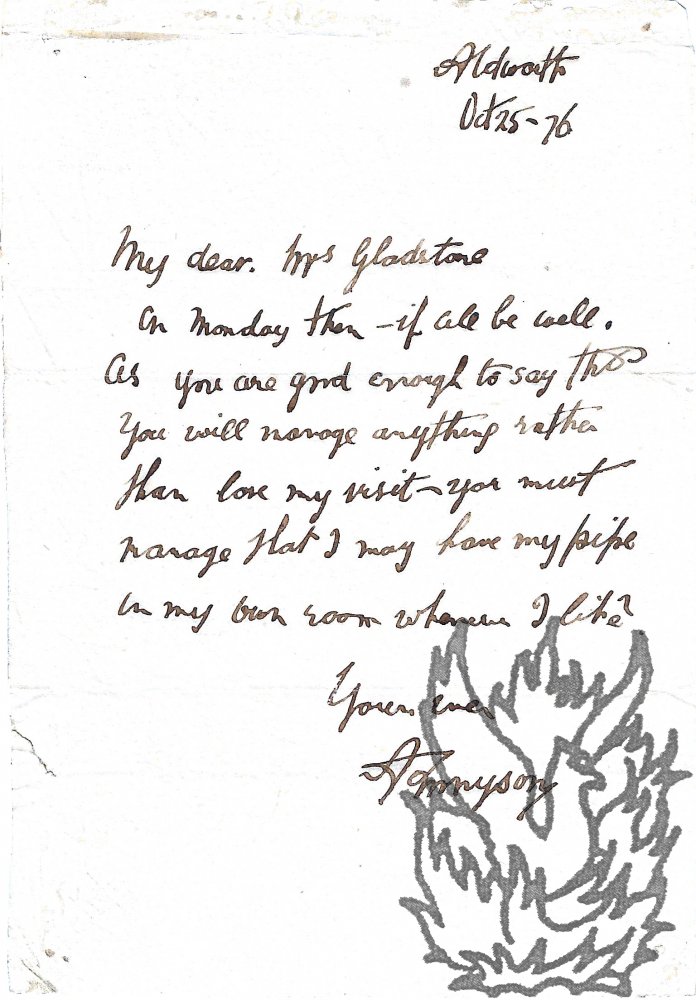 Aldworth
Oct 25 - 76
My dear. Mrs Gladstone
On Monday then - if all be well.
As you are good enough to say that
you will manage anything rather
than lose my visit - you must
manage that I may have my pipe
in my own room whenever I like?
Yours ever
A Tennyson